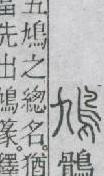 鳩
鶻
五鳩之總名猶
當先出鶻篆。繹